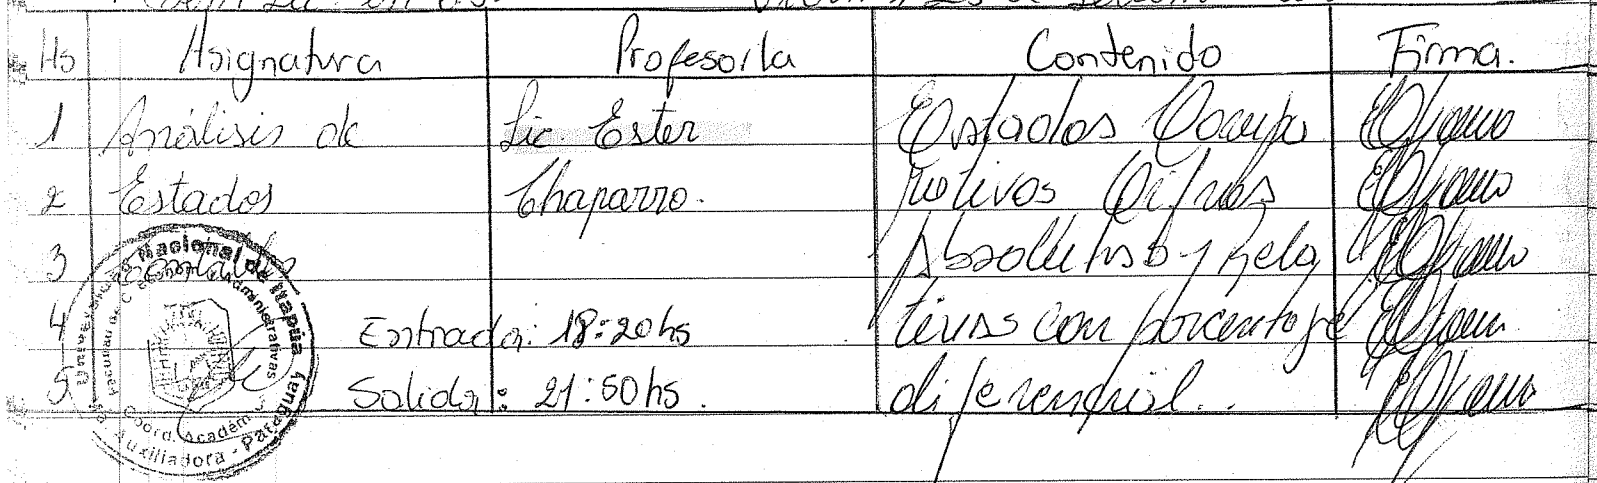 Hs Asignatura Profesor/a Contenido Firma.
1 Análisis de Lic. Ester Estados Comp
2 Estados Chaparro. rativos Cifras
3 Contables Absolutas y Rela
4 Entrada: 18:20hs tivas con porcentaje
5 Salida: 21:50hs. diferencial..
Universidad Nacional de Itapúa
Administrativas
Coord. Académ
Auxiliadora - Paraguay